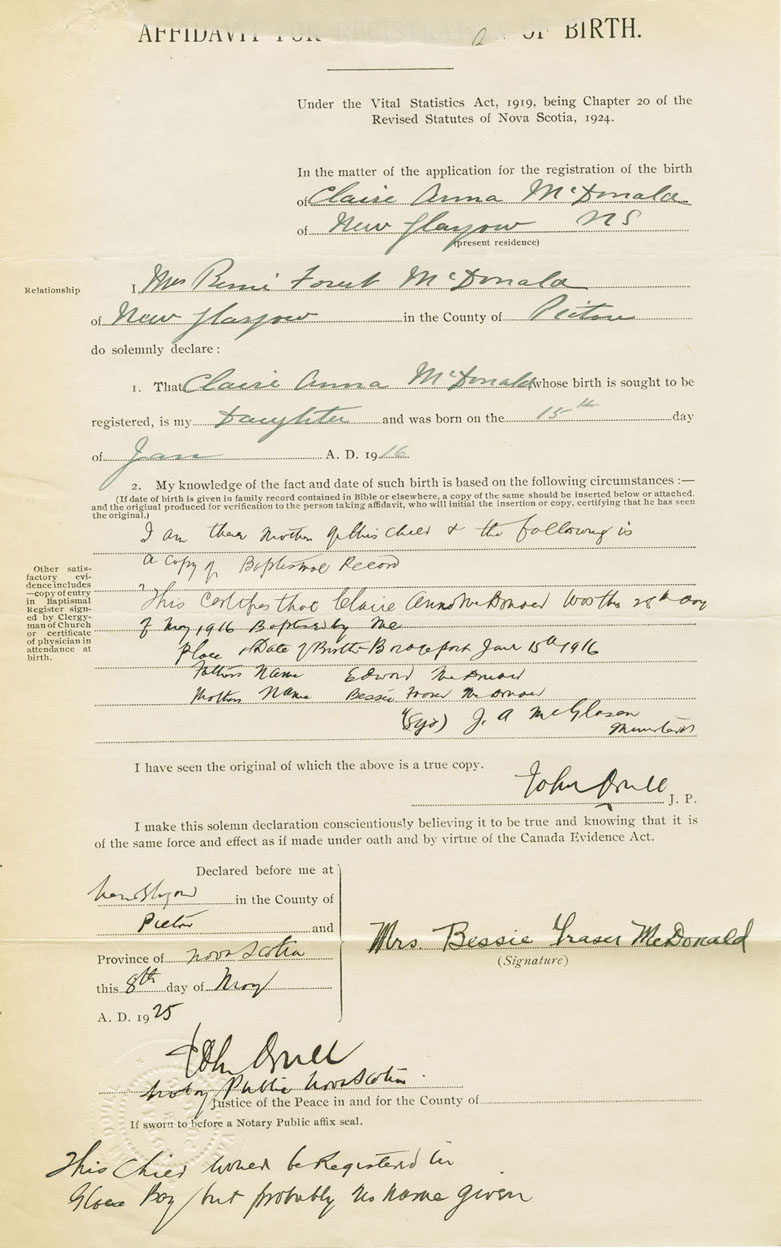 AFFIDAVIT FOR REGISTRATION OF BIRTH.
Under the Vital Statistics Act, 1919, being Chapter 20 of the
Revised Statutes of Nova Scotia, 1924.
In the matter of the application for the registration of the birth
of Claire Anna McDonald
of New Glasgow NS
(present residence)
Relationship
I, Mrs Forest McDonald
of New Glasgow in the County of Pictou
do solemnly declare :
1. That Claire Anna McDonald whose birth is sought to be
registered, is my Daughter and was born on the 15th day
of Jan A. D. 1916
2. My knowledge of the fact and date of such birth is based on the following circumstances :—
(If date of birth is given in family record contained in Bible or elsewhere, a copy of the same should be inserted below or attached.
and the original produced for verification to the person taking affidavit, who will initial the insertion or copy, certifying that he has seen
the original.)
Other satis-
factory evi-
dence includes
—copy of entry
in Baptismal
Register sign-
ed by Clergy-
man of Church
or certificate
of physician in
attendance at
birth.
I am the mother of this child & the following is
a copy of Baptismal Record
"This certifies that Claire Anna McDonald was this 28th day
of May 1916 Baptised by me
Place & Date of Birth - Jan 15th 1916
Fathers Name Edward McDonald
Mothers Name Bessie Fraser McDonald
(Sgd) J. A McGlasen
Minister"
I have seen the original of which the above is a true copy.
John J. P.
I make this solemn declaration conscientiously believing it to be true and knowing that it is
of the same force and effect as if made under oath and by virtue of the Canada Evidence Act.
Declared before me at
New Glasgow in the County of
Pictou and
Province of Nova Scotia
this 8th day of May
A. D. 1925
Mrs. Bessie Fraser McDonald
(Signature)
John
Notary Public Nova Scotia.
Justice of the Peace in and for the County of
If sworn to before a Notary Public affix seal.
This child would be Registered in
Glace Bay but probably no name given